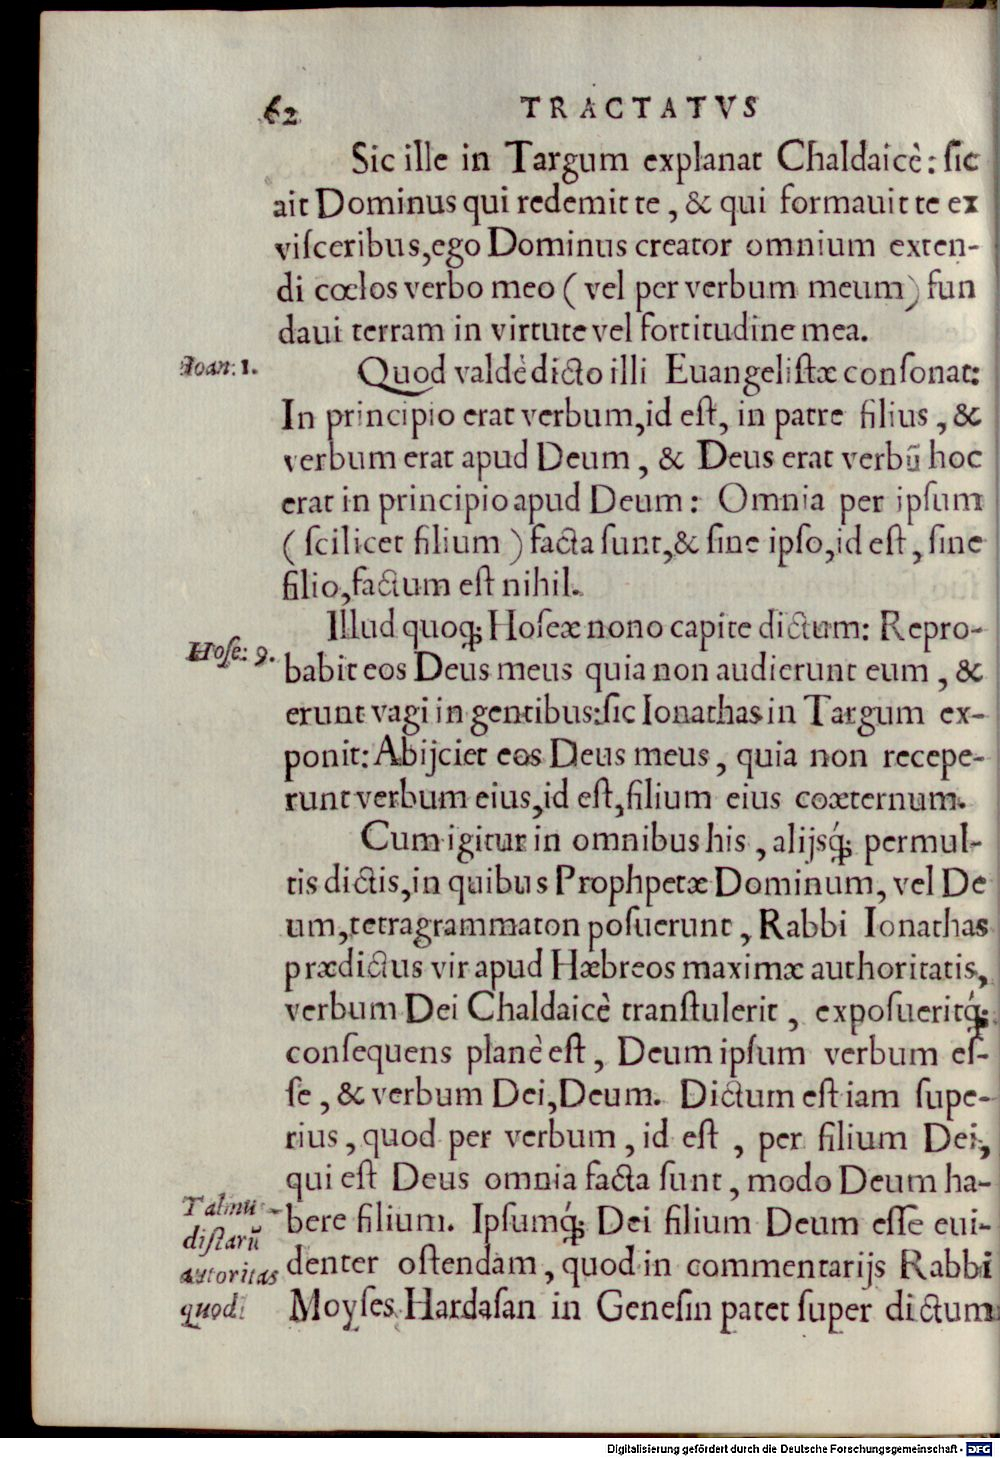 62 TRACTATVS
Sic ille in Targum explanat Chaldaicè: ſic
ait Dominus qui redemit te, & qui formauit te ex
viſceribus, ego Dominus creator omnium exten-
di cœlos verbo meo ( vel per verbum meum) fun
daui terram in virtute vel fortitudine mea.
Ioan: 1.
Quod valdè dicto illi Euangeliſtæ conſonat:
In principio erat verbum, id eſt, in patre filius, &
verbum erat apud Deum, & Deus erat verbū hoc
erat in principio apud Deum: Omnia per ipſum
( ſcilicet filium ) facta ſunt, & ſine ipſo, id eſt, ſine
filio, factum eſt nihil.
Illud quoq; Hoſeæ nono capite dictum: Repro-
Hoſe: 9.
babit eos Deus meus quia non audierunt eum, &
erunt vagi in gentibus: ſic Ionathas in Targum ex-
ponit: Abijciet eos Deus meus, quia non recepe-
runt verbum eius, id eſt, filium eius coæternum.
Cum igitur in omnibus his, alijsq́; permul-
tis dictis, in quibus Prophpetæ Dominum, vel De
um, tetragrammaton poſuerunt, Rabbi Ionathas
prædictus vir apud Hæbreos maximæ authoritatis,
verbum Dei Chaldaicè tranſtulerit, expoſueritq́;
conſequens planè eſt, Deum ipſum verbum eſ-
ſe, & verbum Dei, Deum. Dictum eſt iam ſupe-
rius, quod per verbum, id eſt, per filium Dei,
qui eſt Deus omnia facta ſunt, modo Deum ha-
Talmu-
bere filium. Ipſumq́; Dei filium Deum eſſe eui-
diſtarū
denter oſtendam, quod in commentarijs Rabbi
autoritas
Moyſes Hardaſan in Geneſin patet ſuper dictum
quod
Digitalisierung gefördert durch die Deutsche Forschungsgemeinschaft - DFG